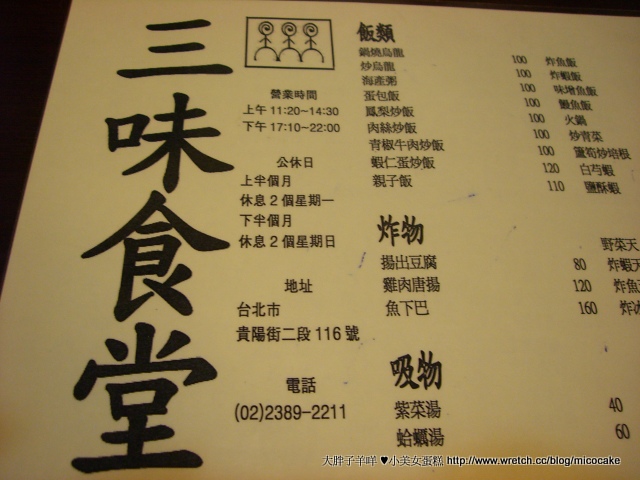 三味食堂
營業時間
上午 11:20~14:30
下午 17:10~22:00
公休日
上半個月
休息 2 個星期一
下半個月
休息 2 個星期日
地址
台北市
貴陽街二段 116 號
電話
(02)2389-2211
飯類
鍋燒烏龍 100
炒烏龍 100
海產粥 100
蛋包飯 100
鳳梨炒飯 100
肉絲炒飯 100
青椒牛肉炒飯 100
蝦仁蛋炒飯 120
親子飯 110
炸魚飯
炸蝦飯
味增魚飯
鰻魚飯
火鍋
炒青菜
蘆筍炒培根
白芍蝦
鹽酥蝦
炸物
揚出豆腐 80
雞肉唐揚 120
魚下巴 160
野菜天
炸蝦天
炸魚
吸物
紫菜湯 40
蛤蠣湯 60
大胖子羊咩 ♥小美女蛋糕 http://www.wretch.cc/blog/micocake